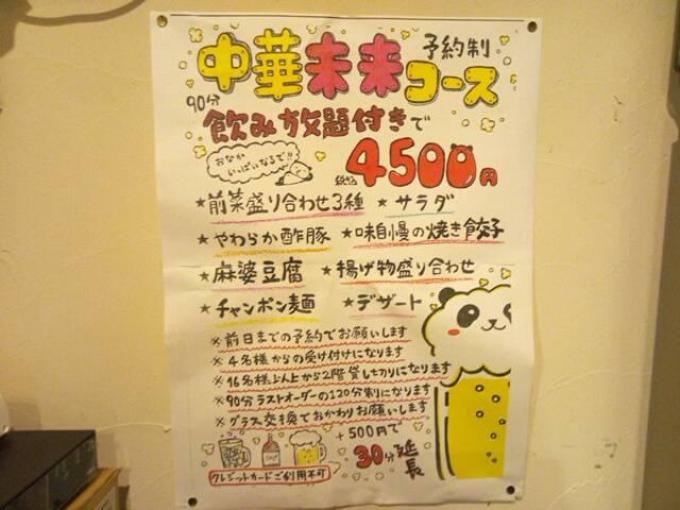 中華未来コース 予約制
90分
飲み放題付きで
おなか
いっぱいなるで!!
税込 4500円
★前菜盛り合わせ3種 ★サラダ
★やわらか酢豚 ★味自慢の焼き餃子
★麻婆豆腐 ★揚げ物盛り合わせ
★チャンポン麺 ★デザート
※前日までの予約でお願いします
※4名様からの受け付けになります
※16名様以上から2階貸し切りになります
※90分ラストオーダーの120分制になります
※グラス交換でおかわりお願いします
+500円で
30分延長
クレジットカードご利用不可